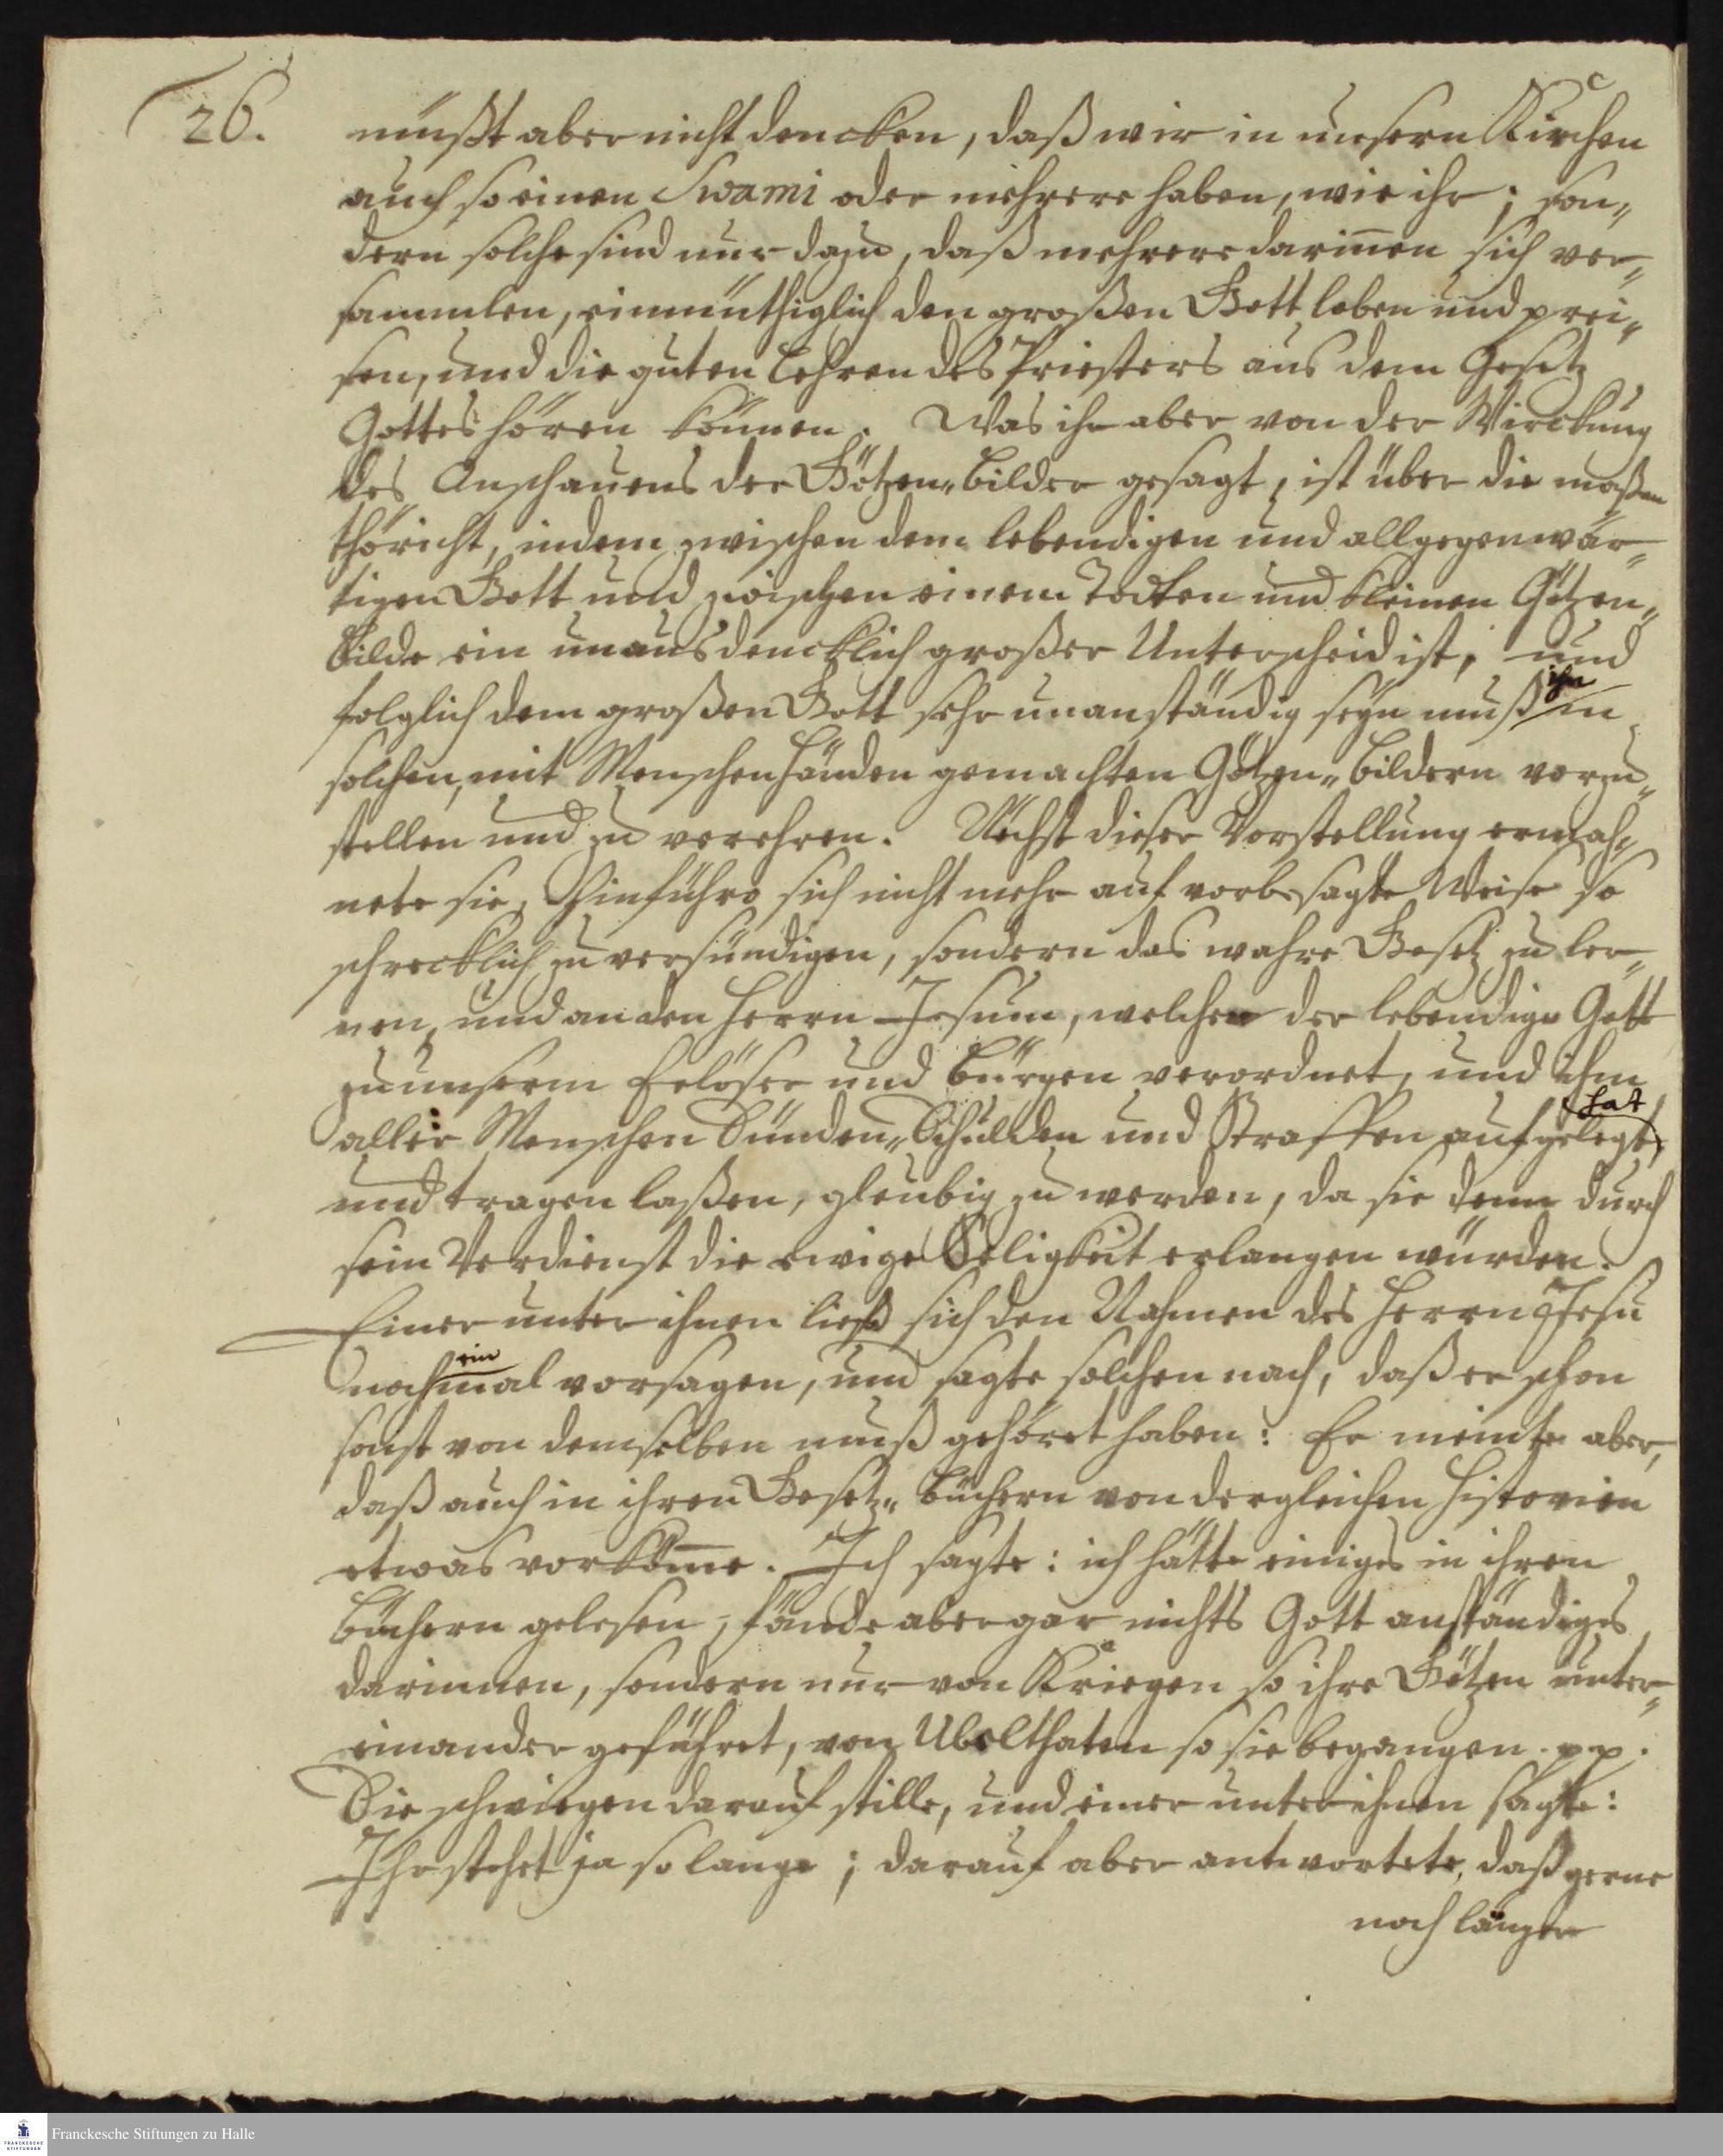 26.
müßt aber nicht dencken, daß wir in unsern Kirchen
auch so einen Swami oder mehrere haben, wie ihr; son„
dern solche sind nur dazu, daß mehrere dariñen sich ver„
sammlen, einmüthiglich den großen Gott loben und prei„
sen, und die guten Lehren des Priesters aus dem Gesetz
Gottes hören können. Was ihr aber von der Wirckung
des Anschauens der Götzen„bilder gesagt, ist über die maßen
thöricht, indem zwischen dem lebendigen und allgegenwär„
tigen Gott und zwischen einem Todten und kleinen Götzen„
bilde ein unausdencklich großer Unterscheid ist, und
folglich dem großen Gott sehr unanständig seyn muß ihn in
solchen, mit Menschenhänden gemachten Götzen„bildern vorzu„
stellen und zu verehren. Nächst dieser Vorstellung ermah„
nete sie, hinführo sich nicht mehr auf vorbesagte Weise so
schrecklich zu versündigen, sondern das wahre Gesetz zu ler„
nen, und an den Herrn Jesum, welchen der lebendige Gott
zu unserm Erlöser und Bürgen verordnet, und ihm
aller Menschen Sünden„Schulden und Straffen aufgelegt hat
und tragen laßen, gläubig zu werden, da sie denn durch
sein Verdienst die ewige Seligkeit erlangen würden.
Einer unter ihnen ließ sich den Nahmen des Herrn Jesu
noch einmal vorsagen, und sagte solchen nach, daß er schon
sonst von demselben muß gehöret haben: Er meinte aber,
daß auch in ihren Gesetz„büchern von dergleichen Historien
etwas vorkom̄e. Ich sagte: ich hätte einiges in ihren
büchern gelesen, fände aber gar nichts Gott anständiges
darinnen, sondern nur von Kriegen so ihre Götzen unter„
einander geführet, von Ubelthaten so sie begangen. pp.
Sie schwiegen darauf stille, und einer unter ihnen sagte:
Ihr stehet ja so lange; darauf aber antwortete, daß gerne
noch länger
Franckesche Stiftungen zu Halle